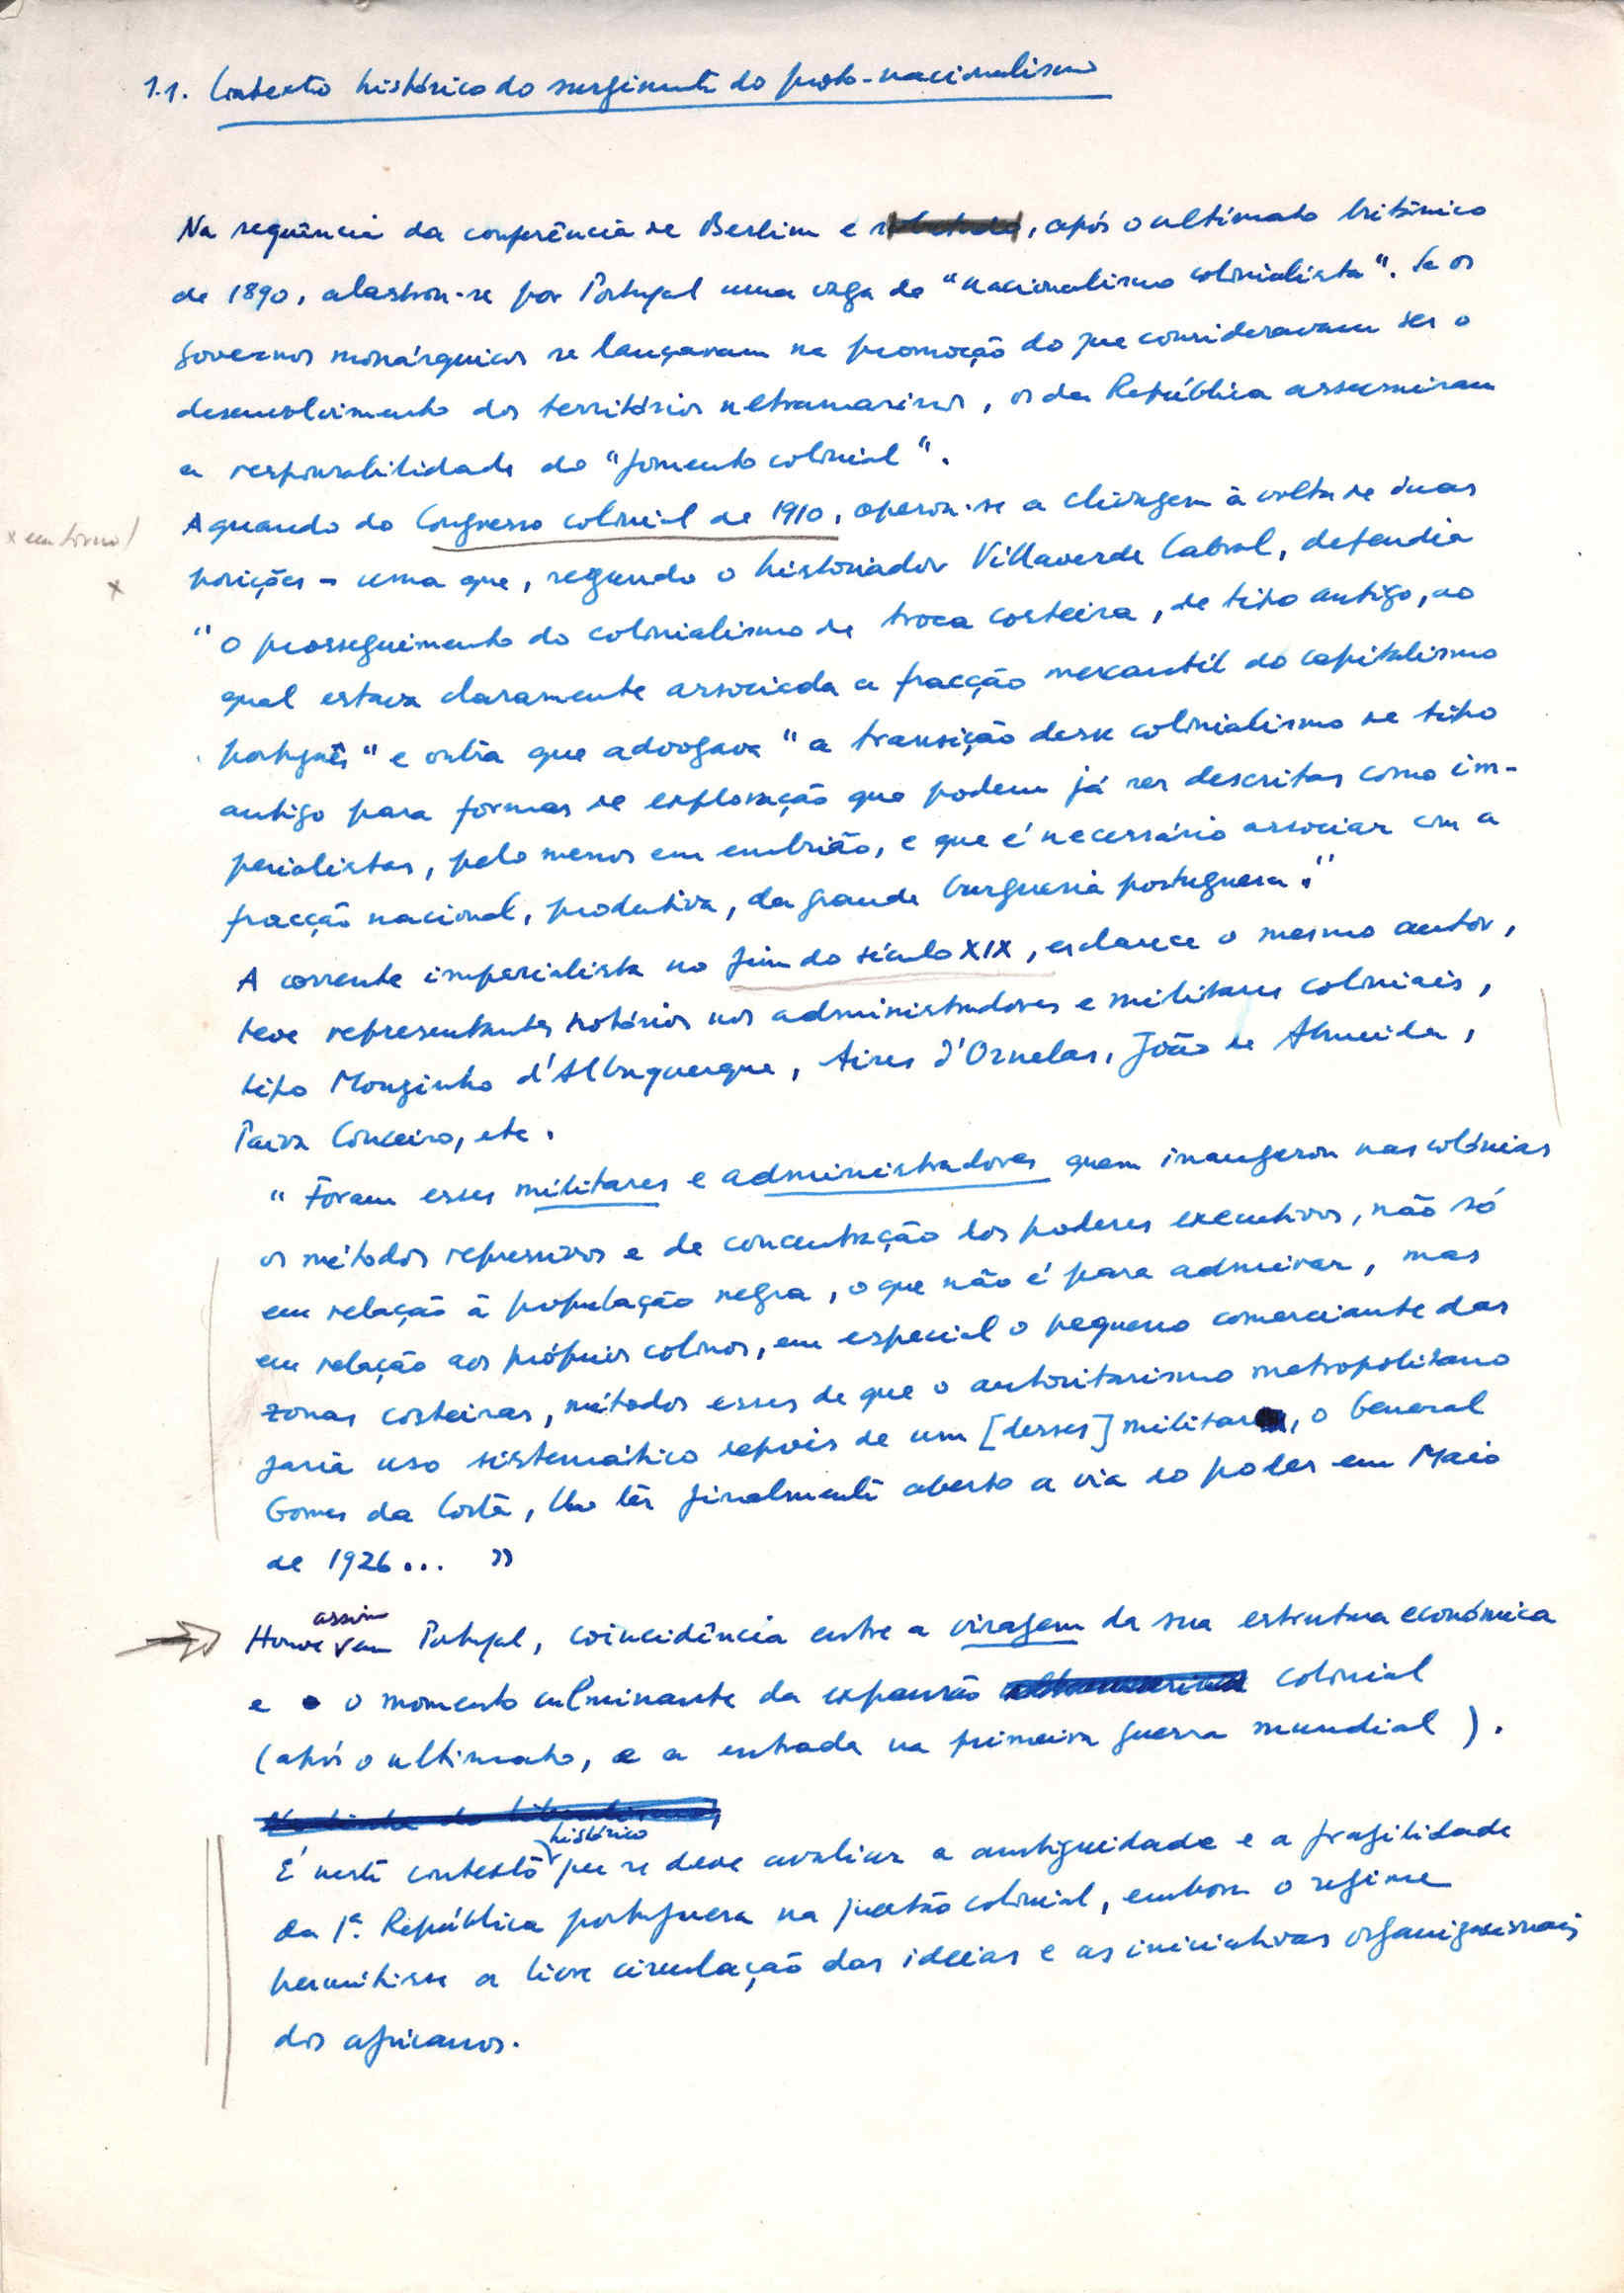 1.1. Contexto histórico do surgimento do proto-nacionalismo
Na sequência da conferência de Berlim e , após o ultimato britânico
de 1890, alastrou-se por Portugal uma vaga de "nacionalismo colonialista". Se os
governos monárquicos se lançavam na promoção do que consideravam ser o
desenvolvimento dos territórios ultramarinos, os da República assumiram
a responsabilidade do "fomento colonial".
Aquando do Congresso colonial de 1910, operou-se a clivagem à volta de duas
x em torno/
x
posições – uma que, segundo o historiador Villaverde Cabral, defendia
"o prosseguimento do colonialismo de troca costeira, de tipo antigo, ao
qual estava claramente associada a fracção mercantil do capitalismo
português" e outra que advogava "a transição desse colonialismo de tipo
antigo para formas de exploração que podem já ser descritas como im-
perialistas, pelo menos em embrião, e que é necessário associar com a
fracção nacional, produtiva, da grande burguesia portuguesa."
A corrente imperialista no fim do século XIX, esclarece o mesmo autor,
teve representantes notórios nos administradores e militares coloniais,
tipo Mouzinho d'Albuquerque, Aires d'Ornelas, João de Almeida,
Paiva Couceiro, etc.
"Foram esses militares e administradores quem inaugurou nas colónias
os métodos repressivos e de concentração dos poderes executivos, não só
em relação à população negra, o que não é para admirar, mas
em relação aos próprios colonos, em especial o pequeno comerciante das
zonas costeiras, métodos esses de que o autoritarismo metropolitano
faria uso sistemático depois de um [desses] militares, o General
Gomes da Costa, lhe ter finalmente aberto a via do poder em Maio
de 1926... »
assim
Houve em Portugal, coincidência entre a viragem da sua estrutura económica
e o momento culminante da expansão colonial
(após o ultimato, e a entrada na primeira guerra mundial).
histórico
É neste contexto que se deve avaliar a ambiguidade e a fragilidade
da 1ª. República portuguesa na questão colonial, embora o regime
permitisse a livre circulação das ideias e as iniciativas organizacionais
dos africanos.